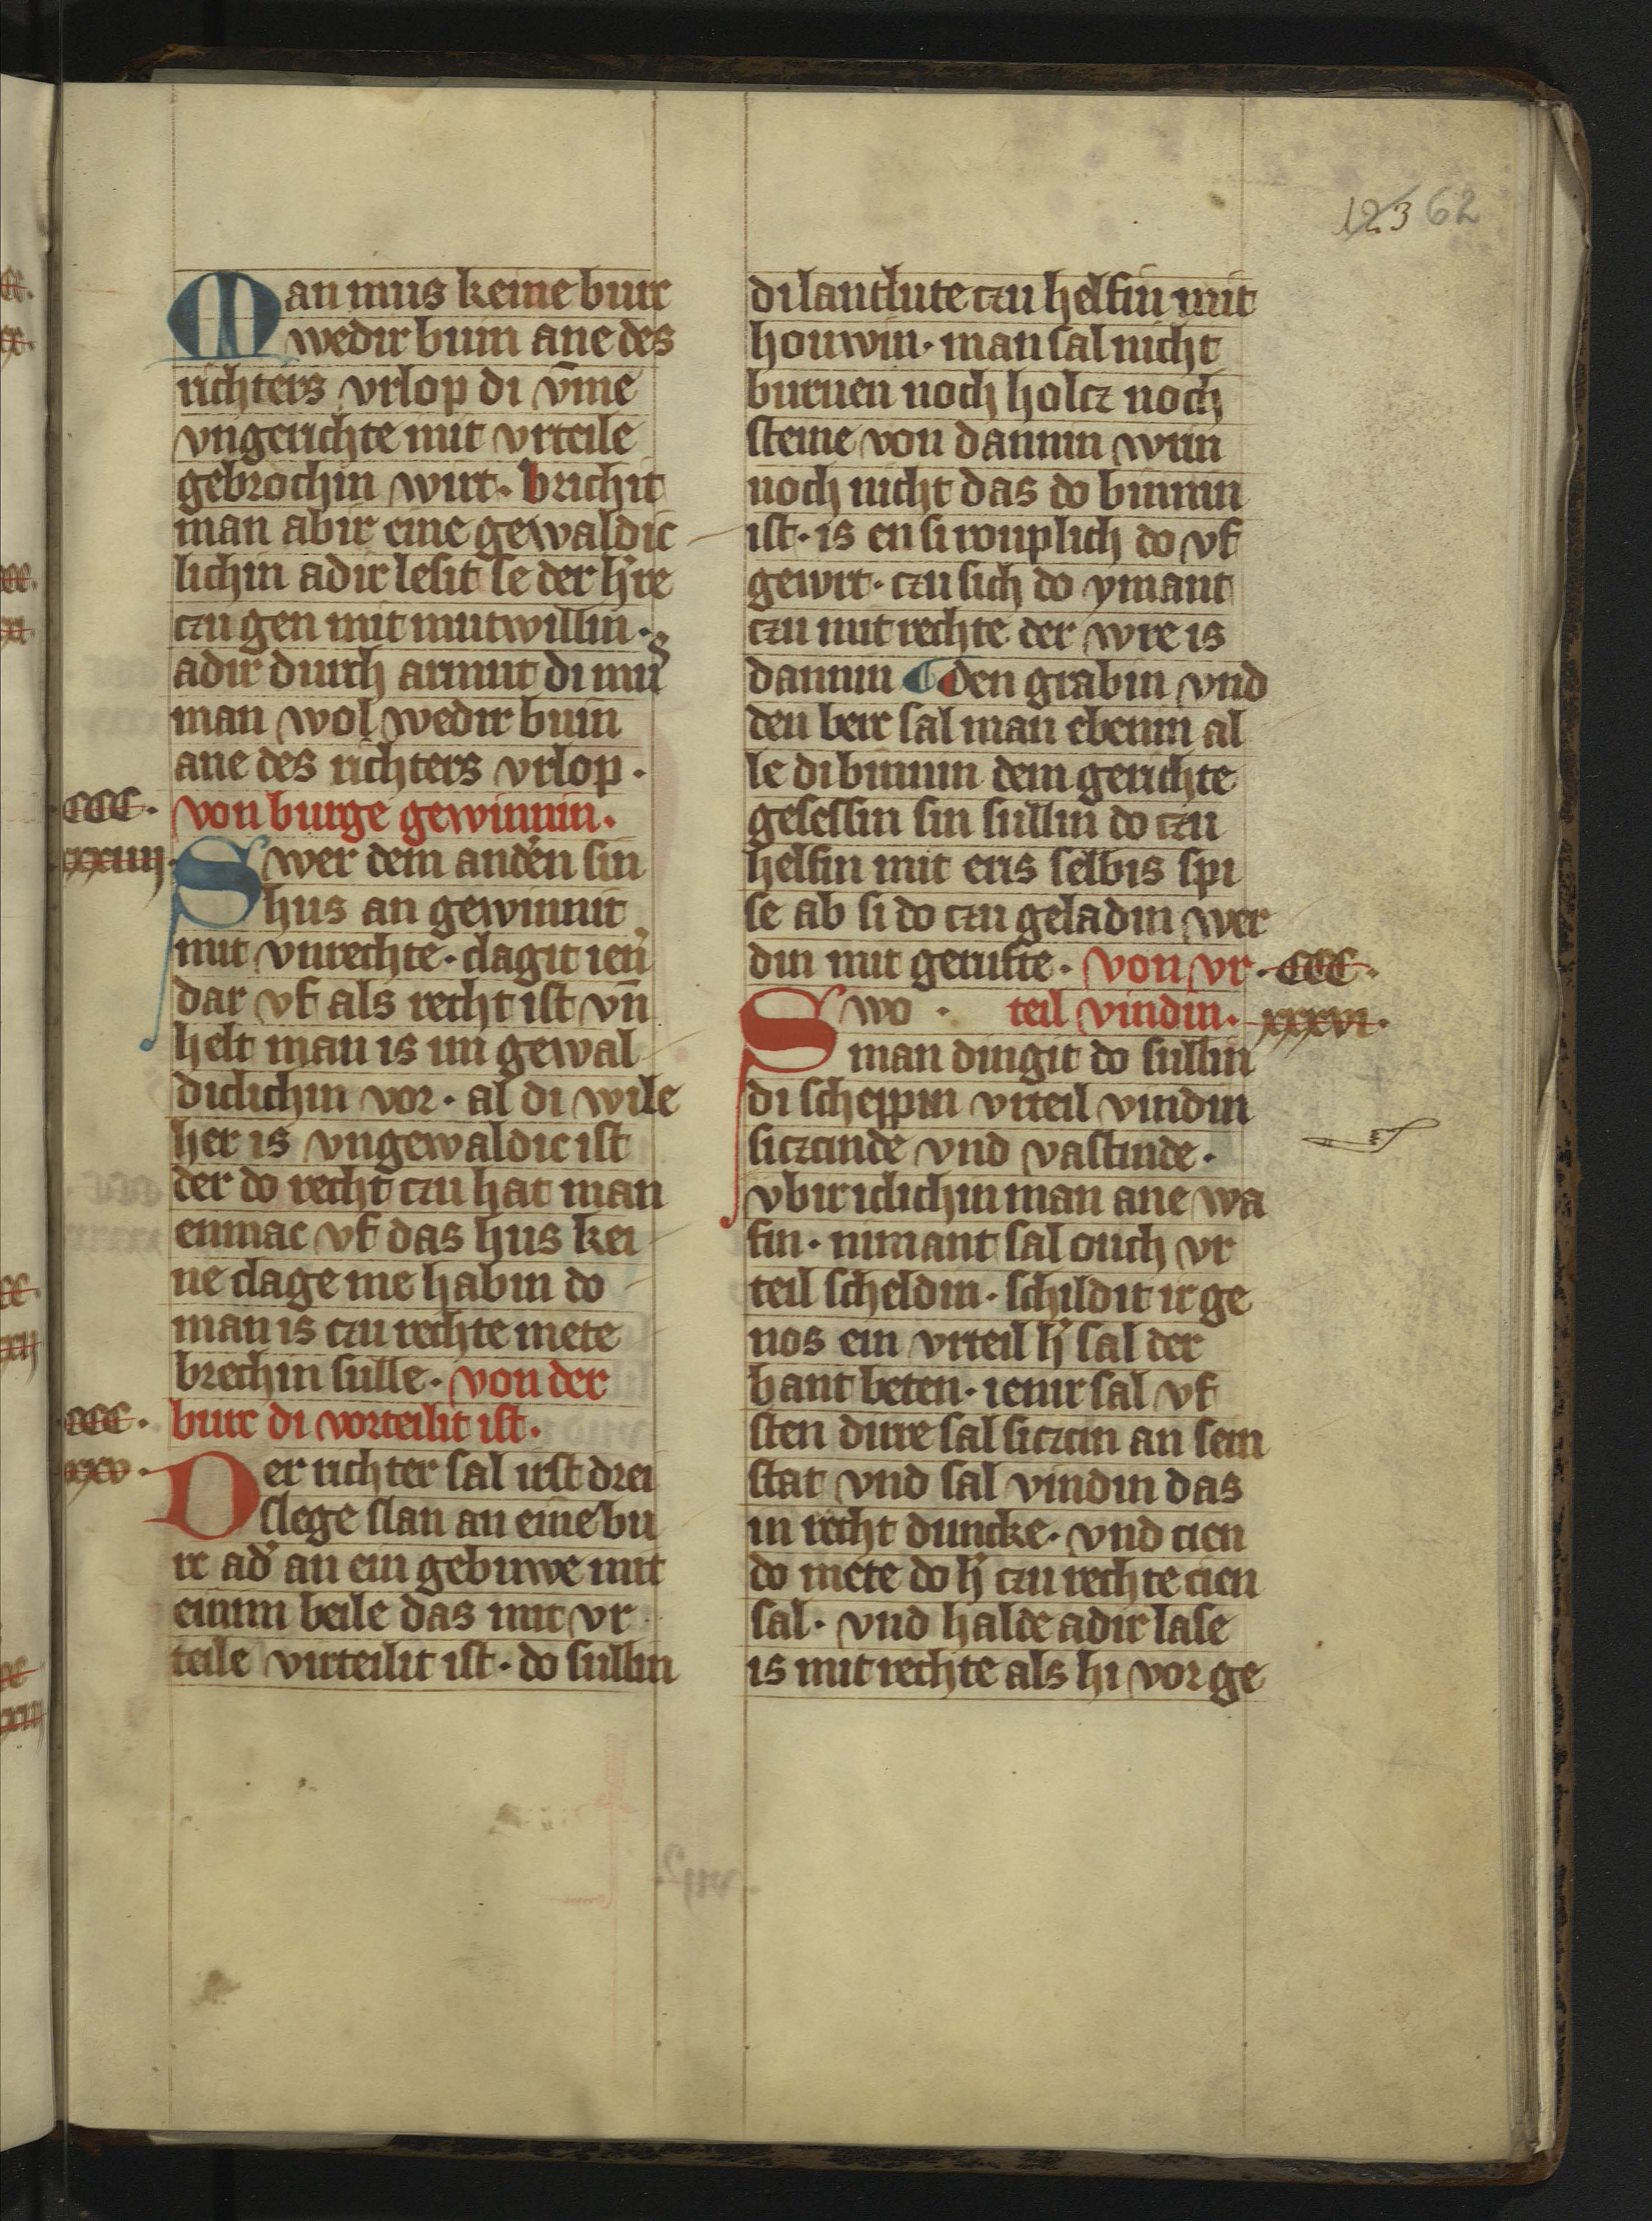 123 62
Man mus keine burc
wedir buin ane des
richters vrlop di v̄me
vngerichte mit vrteile
gebrochin wirt· brichit
man abir eine gewaldic
lichin adir lesit se der h're
czu gen mit mutwillin·
adir durch armut di mus
man wol wedir buin
ane des richters vrlop·
CCC· von burge gewinnin·
xxxiiij· Swer dem anderͥn sin
hus an gewinnit
mit vnrechte· clagit ien'
dar vf als recht ist vn̄
helt man is im gewal
diclichin vor· al di wile
her is vngewaldic ist
der do recht czu hat man
enmac vf das hus kei
ne clage me habin do
man is czu rechte mete
brechin sulle· von der
CCC· burc di vorteilit ist·
xxxv· Der richter sal irst drei
slege slan an eine bu
rc ad' an ein gebuwe mit
einim beile das mit vr
teile virteilit ist· do sullin
di lantlute czu helfin mit
houwin· man sal nicht
burnen noch holcz noch
steine von dannin wrin
noch nicht das do binnin
ist· is en si rouplich do vf
gewrt· czu sich do ymant
czu mit rechte der wre is
dannin ¶ den grabin vnd
den berc sal man ebenin al
le di binnin dem gerichte
gesessin sin sullin do czu
helfin mit eris selbis spi
se ab si do czu geladin wer
din mit gerufte· von vr· CCC·
Swo · teil vindin· xxxvi·
man dingit do sullin
di scheppin vrteil vindin
siczcinde vnd vastinde·
vbir iclichin man ane wa
fin· nimant sal ouch vr
teil scheldin· schildit ir ge
nos ein vrteil h' sal der
bant beten· ienir sal vf
sten dirre sal siczcin an sein
stat vnd sal vindin das
in recht duncke· vnd cien
do mete do h' czu rechte cien
sal· vnd halde adir lase
is mit rechte als hi vor ge